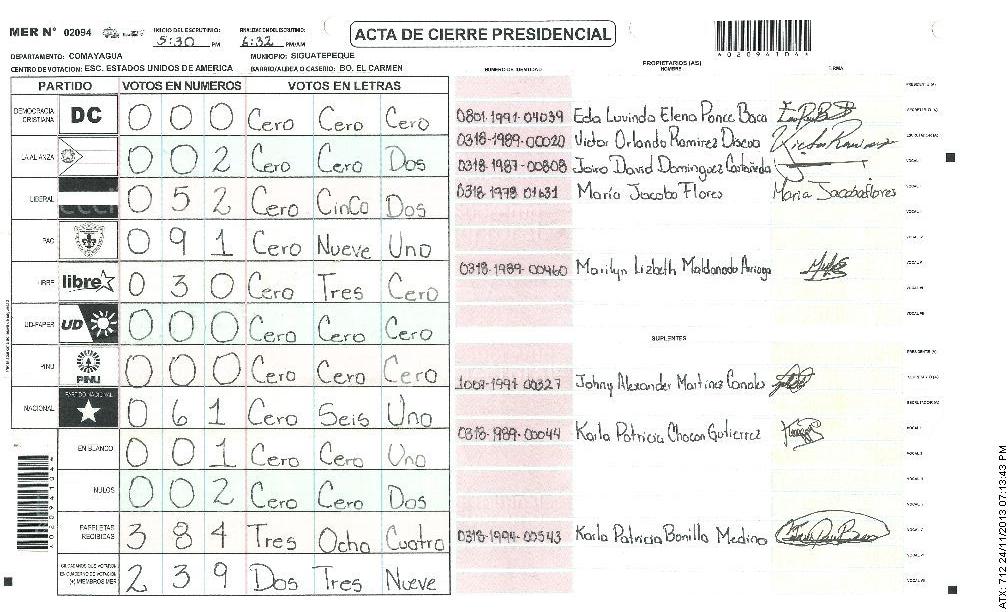 MER Nº 02094 INICIO DEL ESCRUTINIO: 5:30 PM FINALIZACION DEL ESCRUTINIO: 6:32 PM/AM ACTA DE CIERRE PRESIDENCIAL
DEPARTAMENTO: COMAYAGUA MUNICIPIO: SIGUATEPEQUE
CENTRO DE VOTACION: ESC. ESTADOS UNIDOS DE AMERICA BARRIO/ALDEA O CASERIO: BO. EL CARMEN
PARTIDO VOTOS EN NUMEROS VOTOS EN LETRAS
DEMOCRACIA CRISTIANA DC 0 0 0 Cero Cero Cero
LA ALIANZA 0 0 2 Cero Cero Dos
LIBERAL 0 5 2 Cero CinCo Dos
PAC 0 9 1 Cero Nueve Uno
LIBRE libre 0 3 0 Cero Tres Cero
UD-FAPER UD 0 0 0 Cero Cero Cero
PINU PINU 0 0 0 Cero Cero Cero
NACIONAL PARTIDO NACIONAL 0 6 1 Cero Seis Uno
EN BLANCO 0 0 1 Cero Cero Uno
NULOS 0 0 2 Cero Cero Dos
PAPELETAS RECIBIDAS 3 8 4 Tres Ocho Cuatro
CIUDADANOS QUE VOTARON EN CUADERNO DE VOTACION (+) MIEMBROS MER 2 3 9 Dos Tres Nueve
PROPIETARIOS (AS)
NUMERO DE IDENTIDAD NOMBRE FIRMA
0801-1991-04039 Eda Luvinda Elena Ponce Baca
0318-1989-00020 Victor Orlando Ramirez Discua Victor Ramirez
0318-1987-00808 Jairo David Dominguez Castañeda
0318-1978 01631 Maria Jacoba Flores Maria Jacoba flores
0318-1989-00460 Marilyn Lizbeth Maldonado Arriaga
SUPLENTES
Johny Alexander Martinez Canales
0318-1989-00044 Karla Patricia Chacon Gutierrez
0318-1994-00543 Karla Patricia Bonilla Medina
ATX: 712 24/11/2013 07:13:43 PM